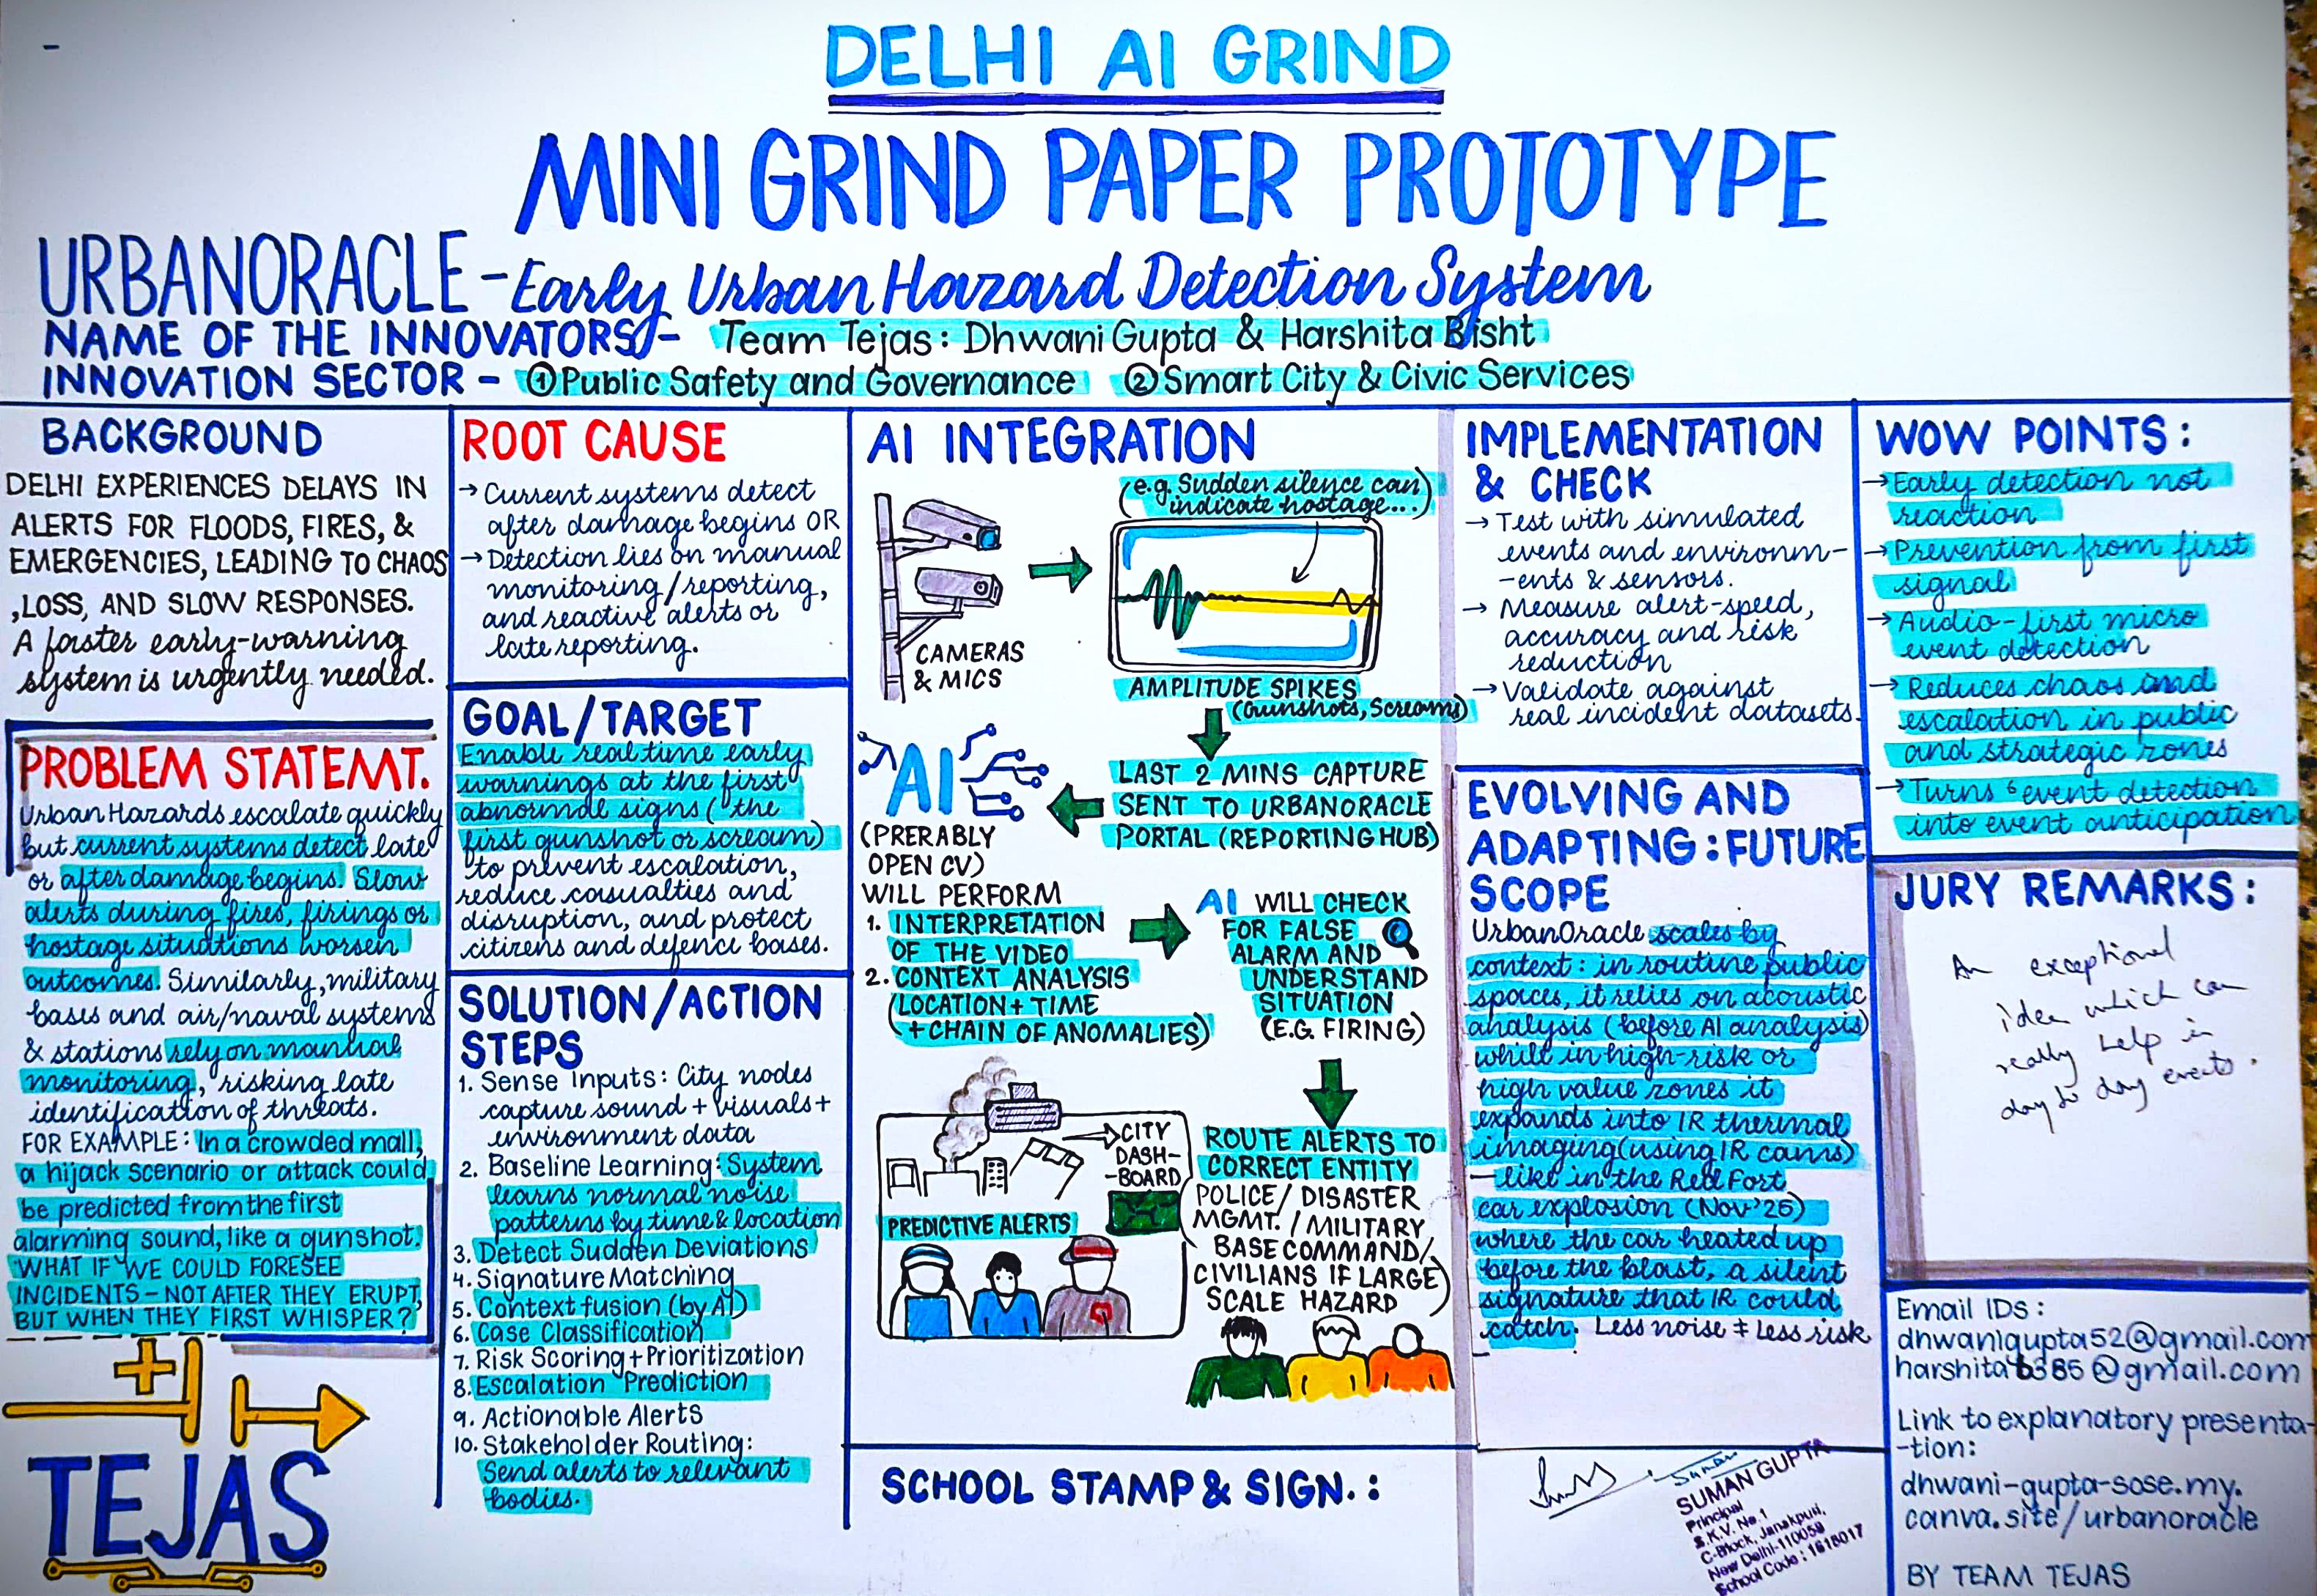 DELHI AI GRIND
MINI GRIND PAPER PROTOTYPE
URBANORACLE - Early Urban Hazard Detection System
NAME OF THE INNOVATORS - Team Tejas: Dhwani Gupta & Harshita Bisht
INNOVATION SECTOR - ① Public Safety and Governance ② Smart City & Civic Services
BACKGROUND
DELHI EXPERIENCES DELAYS IN
ALERTS FOR FLOODS, FIRES, &
EMERGENCIES, LEADING TO CHAOS
,LOSS, AND SLOW RESPONSES.
A faster early-warning
system is urgently needed.
PROBLEM STATEMT.
Urban Hazards escalate quickly
but current systems detect late
or after damage begins. Slow
alerts during fires, firings or
hostage situations worsen
outcomes. Similarly, military
bases and air/naval systems
& stations rely on manual
monitoring, risking late
identification of threats.
FOR EXAMPLE: In a crowded mall,
a hijack scenario or attack could
be predicted from the first
alarming sound, like a gunshot.
WHAT IF WE COULD FORESEE
INCIDENTS - NOT AFTER THEY ERUPT,
BUT WHEN THEY FIRST WHISPER?
TEJAS
ROOT CAUSE
→ Current systems detect
after damage begins OR
→ Detection lies on manual
monitoring/reporting,
and reactive alerts or
late reporting.
GOAL/TARGET
Enable real time early
warnings at the first
abnormal signs (the
first gunshot or scream)
to prevent escalation,
reduce casualties and
disruption, and protect
citizens and defence bases.
SOLUTION/ACTION
STEPS
1. Sense Inputs: City nodes
capture sound + visuals +
environment data
2. Baseline Learning: System
learns normal noise
patterns by time & location
3. Detect Sudden Deviations
4. Signature Matching
5. Context fusion (by AI)
6. Case Classification
7. Risk Scoring + Prioritization
8. Escalation Prediction
9. Actionable Alerts
10. Stakeholder Routing:
Send alerts to relevant
bodies.
AI INTEGRATION
(e.g. Sudden silence can
indicate hostage...)
CAMERAS
& MICS
AMPLITUDE SPIKES
(Gunshots, Screams)
LAST 2 MINS CAPTURE
SENT TO URBANORACLE
PORTAL (REPORTING HUB)
AI
(PRERABLY
OPEN CV)
WILL PERFORM
1. INTERPRETATION
OF THE VIDEO
2. CONTEXT ANALYSIS
(LOCATION + TIME
+ CHAIN OF ANOMALIES)
AI WILL CHECK
FOR FALSE
ALARM AND
UNDERSTAND
SITUATION
(E.G. FIRING)
CITY
DASH-
-BOARD
PREDICTIVE ALERTS
ROUTE ALERTS TO
CORRECT ENTITY
(POLICE / DISASTER
MGMT. / MILITARY
BASE COMMAND/
CIVILIANS IF LARGE
SCALE HAZARD)
SCHOOL STAMP & SIGN. :
IMPLEMENTATION
& CHECK
→ Test with simulated
events and environm-
-ents & sensors.
→ Measure alert-speed,
accuracy and risk
reduction
→ Validate against
real incident datasets.
EVOLVING AND
ADAPTING : FUTURE
SCOPE
UrbanOracle scales by
context: in routine public
spaces, it relies on acoustic
analysis (before AI analysis)
while in high-risk or
high value zones it
expands into IR thermal
imaging (using IR cams)
- like in the Red Fort
car explosion (Nov'25)
where the car heated up
before the blast, a silent
signature that IR could
catch. Less noise ≠ Less risk
Suman
SUMAN GUPTA
Principal
S.K.V. No.1
C-Block, Janakpuri,
New Delhi-110058
School Code : 1618017
WOW POINTS :
→ Early detection not
reaction
→ Prevention from first
signal
→ Audio-first micro
event detection
→ Reduces chaos and
escalation in public
and strategic zones
→ Turns event detection
into event anticipation
JURY REMARKS :
An exceptional
idea which can
really help in
day to day events.
Email IDs :
dhwanigupta52@gmail.com
harshita6385@gmail.com
Link to explanatory presenta-
-tion:
dhwani-gupta-sose.my.
canva.site/urbanoracle
BY TEAM TEJAS